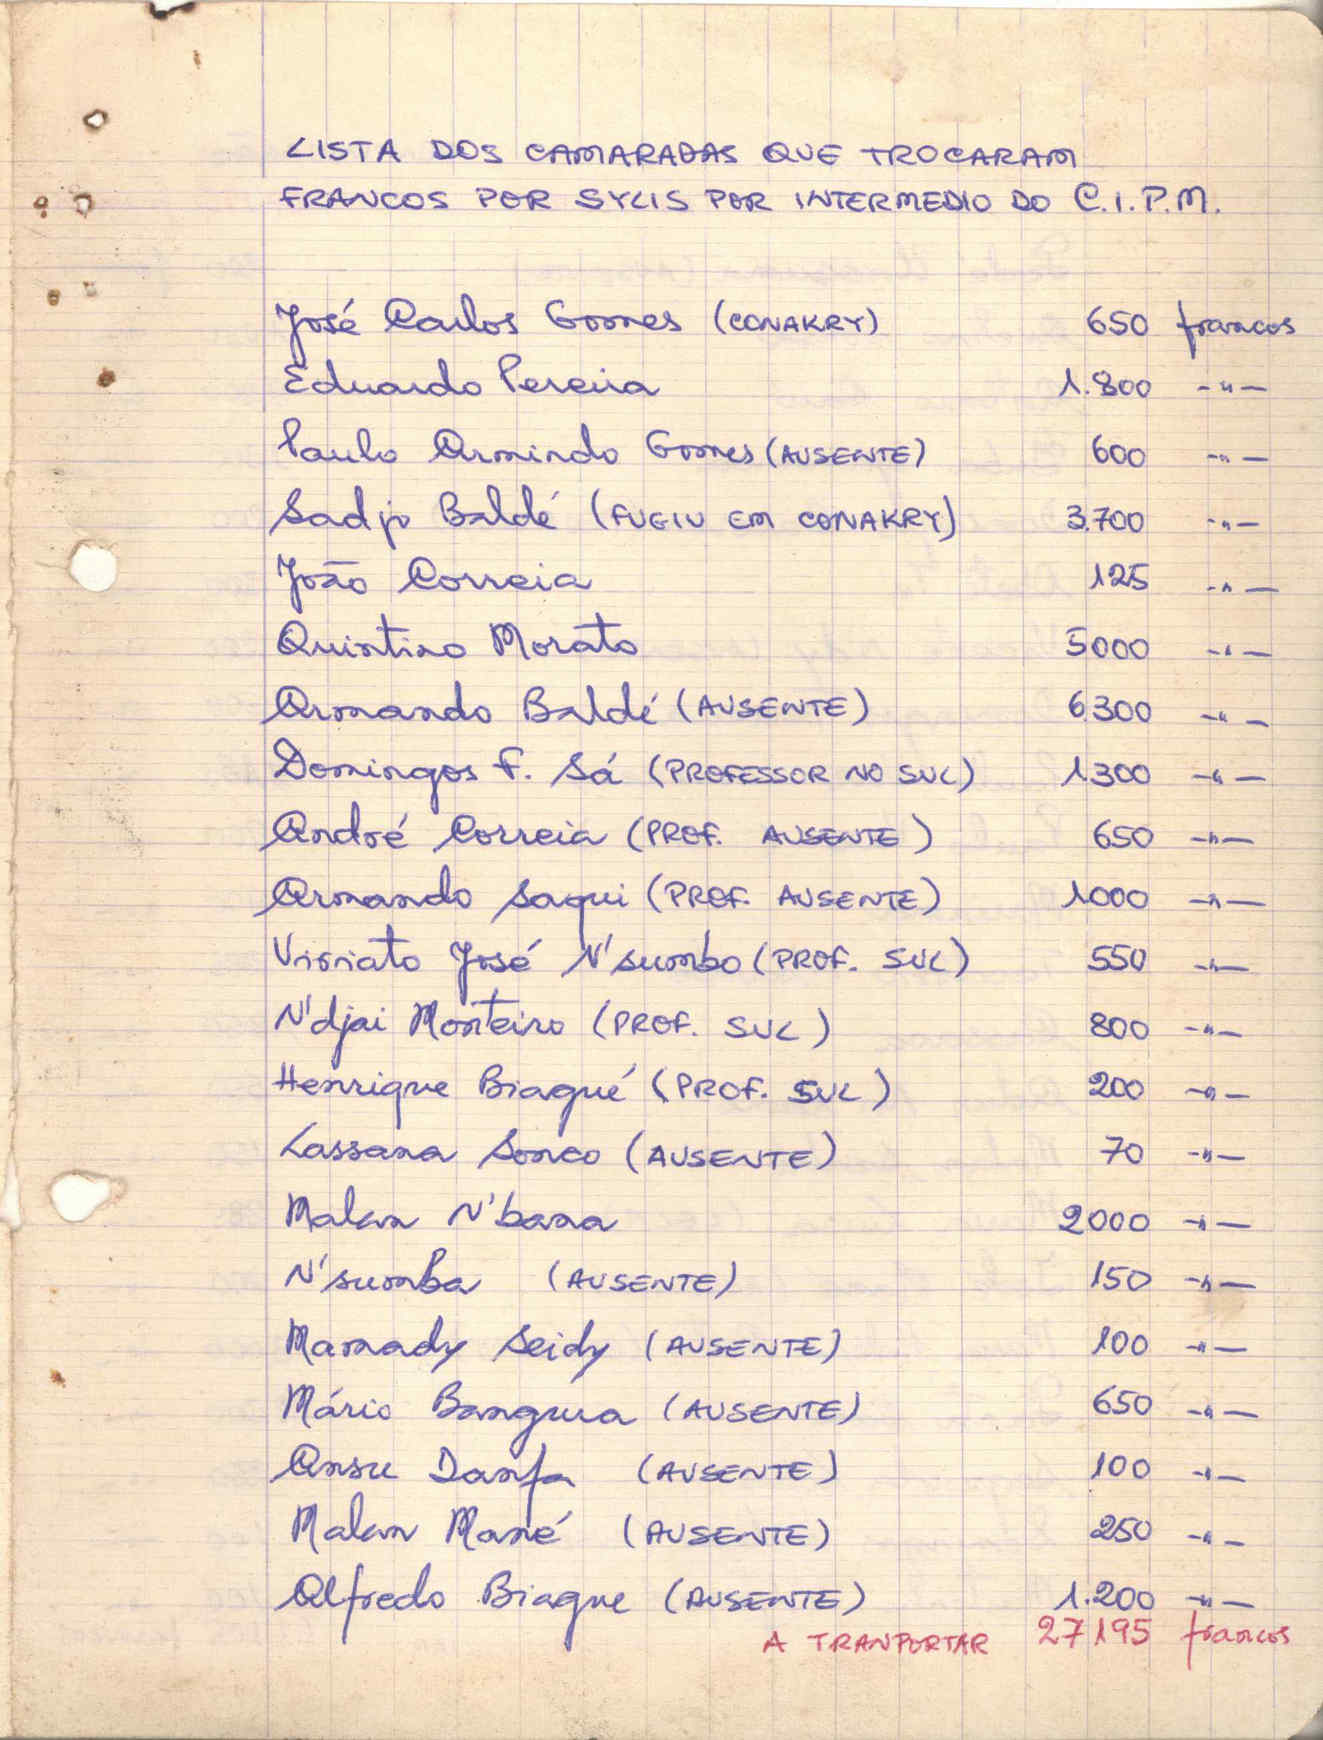 LISTA DOS CAMARADAS QUE TROCARAM
FRANCOS POR SYLIS POR INTERMEDIO DO C.I.P.M.
José Carlos Gomes (CONAKRY) 650 francos
Eduardo Pereira 1.800 -"-
Paulo Armindo Gomes (AUSENTE) 600 -"-
Sadjo Baldé (FUGIU EM CONAKRY) 3.700 -"-
João Correia 125 -"-
Quintino Morato 5000 -"-
Armando Baldé (AUSENTE) 6.300 -"-
Domingos F. Sá (PROFESSOR NO SUL) 1.300 -"-
André Correia (PROF. AUSENTE) 650 -"-
Armando Saqui (PROF. AUSENTE) 1000 -"-
Viriato José N'sumbo (PROF. SUL) 550 -"-
N'djai Monteiro (PROF. SUL) 800 -"-
Henrique Biagué (PROF. SUL) 200 -"-
Lassana Sonco (AUSENTE) 70 -"-
Malan N'bana 2000 -"-
N'sumba (AUSENTE) 150 -"-
Mamady Seidy (AUSENTE) 100 -"-
Mário Bangura (AUSENTE) 650 -"-
Ansu Danfa (AUSENTE) 100 -"-
Malan Mané (AUSENTE) 250 -"-
Alfredo Biague (AUSENTE) 1.200 -"-
A TRANPORTAR 27195 francos